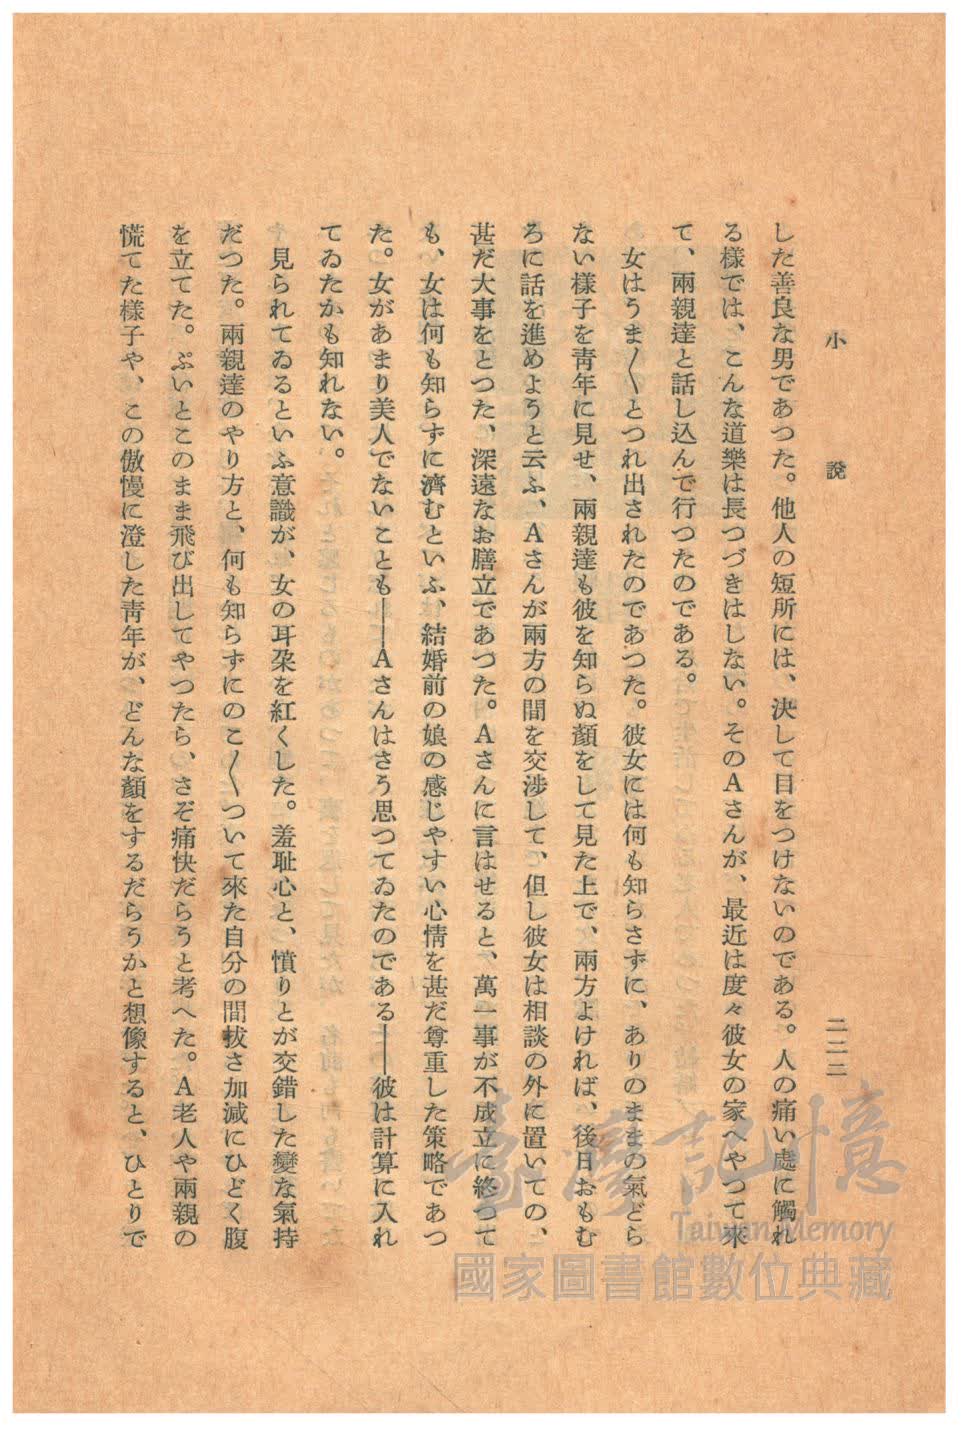 小說
二三二
した善良な男であつた。他人の短所には、決して目をつけないのである。人の痛い處に觸れ
る樣では、こんな道樂は長つづきはしない。そのAさんが、最近は度々彼女の家へやつて來
て、兩親達と話し込んで行つたのである。
女はうま〱とつれ出されたのであつた。彼女には何も知らさずに、ありのままの氣どら
ない樣子を靑年に見せ、兩親達も彼を知らぬ顏をして見た上で、兩方よければ、後日おもむ
ろに話を進めようと云ふ、Aさんが兩方の間を交渉して、但し彼女は相談の外に置いての、
甚だ大事をとつた、深遠なお膳立であつた。Aさんに言はせると、萬一事が不成立に終つて
も、女は何も知らずに濟むといふ、結婚前の娘の感じやすい心情を甚だ尊重した策略であつ
た。女があまり美人でないことも――Aさんはさう思つてゐたのである――彼は計算に入れ
てゐたかも知れない。
見られてゐるといふ意識が、女の耳朶を紅くした。羞恥心と、憤りとが交錯した變な氣持
だつた。兩親達のやり方と、何も知らずにのこ〱ついて來た自分の間拔さ加減にひどく腹
を立てた。ぷいとこのまま飛び出してやつたら、さぞ痛快だらうと考へた。A老人や兩親の
慌てた樣子や、この傲慢に澄した靑年が、どんな顏をするだらうかと想像すると、ひとりで
臺灣記憶
Taiwan Memory
國家圖書館數位典藏